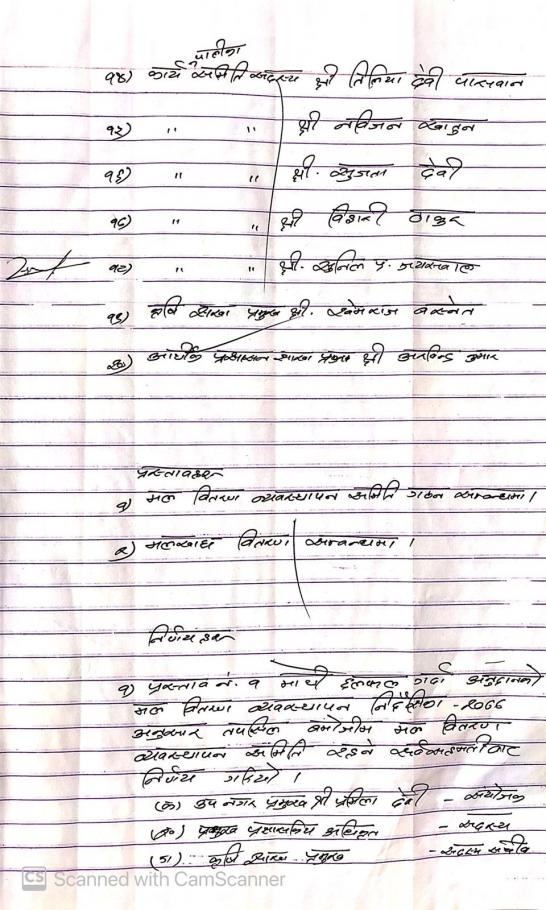 पालीका
१४) कार्य समिति सदस्य श्री तितिया देवी पासवान
१५) " " श्री नविजन खातुन
१६) " " श्री. सुजता देवी
१७) " " श्री बिहारी ठाकुर
१८) " " श्री. सुनिल प्र. जयसवाल
१९) कृषि शाखा प्रमुख श्री. खेमराज बस्नेत
२०) आर्थीक प्रशासन शाखा प्रमुख श्री अरविन्द कुमार
प्रस्तावहरु
१) मल वितरण व्यवस्थापन समिति गठन सम्बन्धमा।
२) मलखाद वितरण सम्बन्धमा।
निर्णयहरु
१) प्रस्ताव नं. १ माथी छलफल गर्दा अनुदानको
मल वितरण व्यवस्थापन निर्देशिका - २०७७
अनुसार तपसिल बमोजीम मल वितरण
व्यवस्थापन समिति रहने सर्वसहमतीबाट
निर्णय गरियो।
(क) उप नगर प्रमुख श्री प्रमिला देवी - संयोजक
(ख) प्रमुख प्रशासकिय अधिकृत - सदस्य
(ग) कृषि शाखा प्रमुख - सदस्य सचीव
CS Scanned with CamScanner